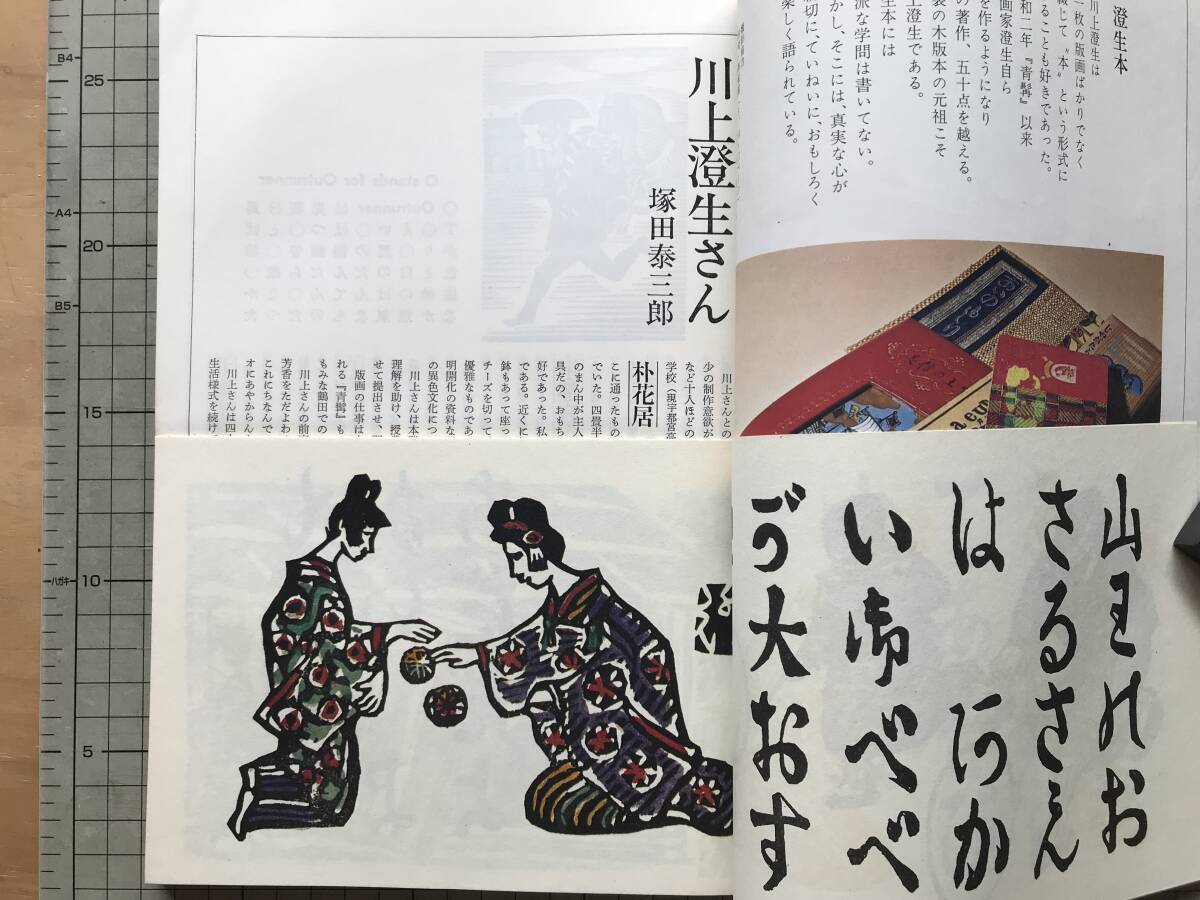 澄生本
川上澄生は
一枚の版画ばかりでなく
綴じて〝本〟という形式に
ることも好きであった。
和二年『青髯』以来
画家澄生自ら
を作るようになり
の著作、五十点を越える。
袋の木版本の元祖こそ
上澄生である。
生本には
派な学問は書いてない。
かし、そこには、真実な心が
切にていねいに、おもしろく
楽しく語られている。
川上澄生さん
塚田泰三郎
川上さんとの
少の制作意欲が
など十人ほどの
学校(現宇都宮高
朴花居
こに通ったもの
でいた。四畳半
のまん中が主人
具だの、おもち
好であった。私
である。近くに
鉢もあって座っ
チーズを切って
優雅なものであ
明開化の資料な
の異色文化につ
川上さんは本
理解を助け、授
せて提出させ、
版画の仕事は
れる『青髯』も
もみな鶴田での
川上さんの前
芳香をただよわ
これにちなんで
オにあやからん
川上さんは四
生活様式を続け
山王のお
さるさん
は アカ
い御べべ
が大おす
B4
25
A4
20
B5
15
ハガキ
10
5